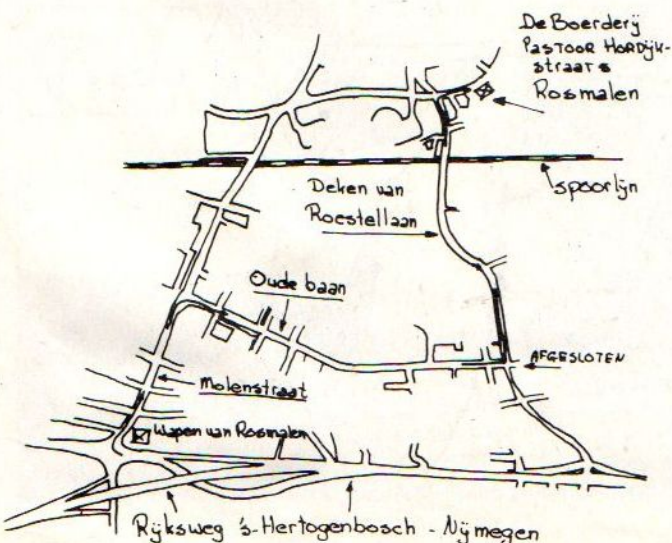 De Boerderij
PASTOOR HORDIJK-
straat 8
Rosmalen
spoorlijn
Deken van
Roestellaan
Oude baan
AFGESLOTEN
Molenstraat
Wapen van Rosmalen
Rijksweg 's-Hertogenbosch - Nijmegen